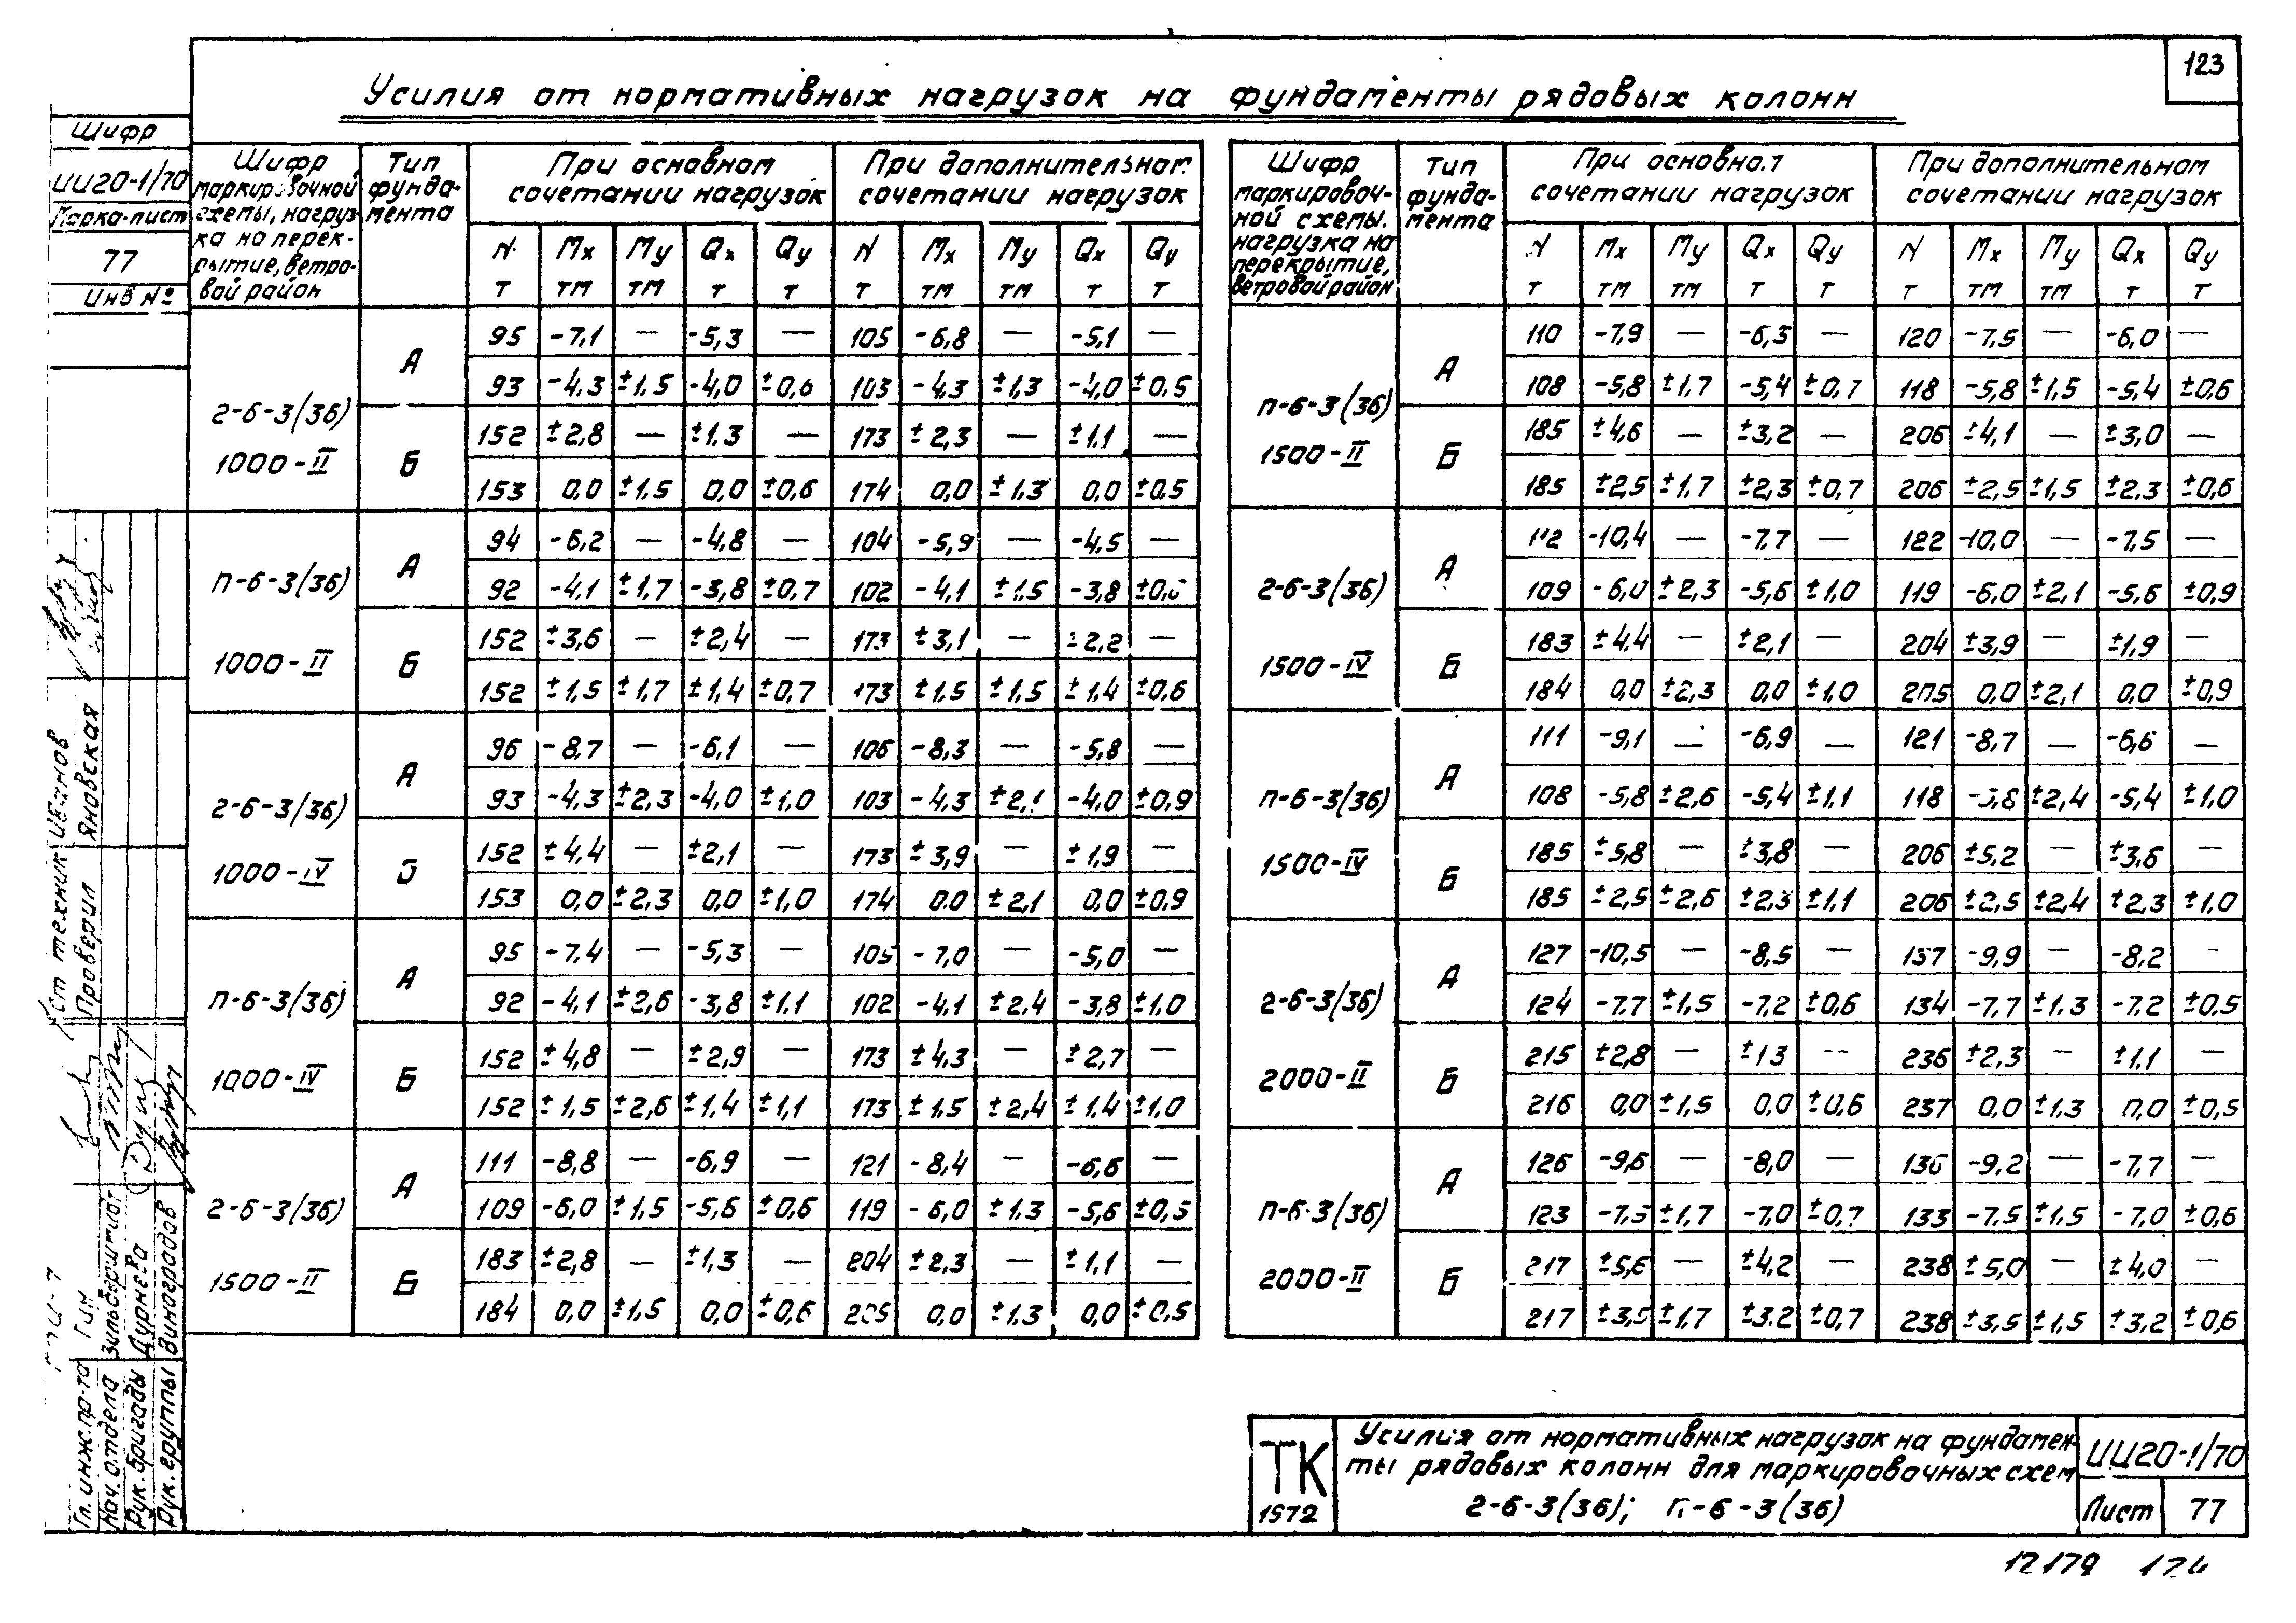 123
Усилия от нормативных нагрузок на фундаменты рядовых колонн
Шифр
ИИ20-1/70
Марка-лист
77
Инв №
Шифр маркировочной схемы, нагрузка на перекрытие, ветровой район | Тип фундамента | При основном сочетании нагрузок | При дополнительном сочетании нагрузок
N Mx My Qx Qy N Mx My Qx Qy
т тм тм т т т тм тм т т
2-6-3(36) 1000-II
А
95 -7,1 — -5,3 — 105 -6,8 — -5,1 —
93 -4,3 ±1,5 -4,0 ±0,6 103 -4,3 ±1,3 -4,0 ±0,5
Б
152 ±2,8 — ±1,3 — 173 ±2,3 — ±1,1 —
153 0,0 ±1,5 0,0 ±0,6 174 0,0 ±1,3 0,0 ±0,5
п-6-3(36) 1000-II
А
94 -6,2 — -4,8 — 104 -5,9 — -4,5 —
92 -4,1 ±1,7 -3,8 ±0,7 102 -4,1 ±1,5 -3,8
Б
152 ±3,6 — ±2,4 — 173 ±3,1 — ±2,2 —
152 ±1,5 ±1,7 ±1,4 ±0,7 173 ±1,5 ±1,5 ±1,4 ±0,6
2-6-3(36) 1000-IV
А
96 -8,7 — -6,1 — 106 -8,3 — -5,8 —
93 -4,3 ±2,3 -4,0 ±1,0 103 -4,3 ±2,1 -4,0 ±0,9
Б
152 ±4,4 — ±2,1 — 173 ±3,9 — ±1,9 —
153 0,0 ±2,3 0,0 ±1,0 174 0,0 ±2,1 0,0 ±0,9
п-6-3(36) 1000-IV
А
95 -7,4 — -5,3 — 105 -7,0 — -5,0 —
92 -4,1 ±2,6 -3,8 ±1,1 102 -4,1 ±2,4 -3,8 ±1,0
Б
152 ±4,8 — ±2,9 — 173 ±4,3 — ±2,7 —
152 ±1,5 ±2,6 ±1,4 ±1,1 173 ±1,5 ±2,4 ±1,4 ±1,0
2-6-3(36) 1500-II
А
111 -8,8 — -6,9 — 121 -8,4 — -6,6 —
109 -6,0 ±1,5 -5,6 ±0,6 119 -6,0 ±1,3 -5,6 ±0,5
Б
183 ±2,8 — ±1,3 — 204 ±2,3 — ±1,1 —
184 0,0 ±1,5 0,0 ±0,6 205 0,0 ±1,3 0,0 ±0,5
Шифр маркировочной схемы. нагрузка на перекрытие, ветровой район | Тип фундамента | При основном сочетании нагрузок | При дополнительном сочетании нагрузок
N Mx My Qx Qy N Mx My Qx Qy
т тм тм т т т тм тм т т
п-6-3(36) 1500-II
А
110 -7,9 — -6,3 — 120 -7,5 — -6,0 —
108 -5,8 ±1,7 -5,4 ±0,7 118 -5,8 ±1,5 -5,4 ±0,6
Б
185 ±4,6 — ±3,2 — 206 ±4,1 — ±3,0 —
185 ±2,5 ±1,7 ±2,3 ±0,7 206 ±2,5 ±1,5 ±2,3 ±0,6
2-6-3(36) 1500-IV
А
112 -10,4 — -7,7 — 122 -10,0 — -7,5 —
109 -6,0 ±2,3 -5,6 ±1,0 119 -6,0 ±2,1 -5,6 ±0,9
Б
183 ±4,4 — ±2,1 — 204 ±3,9 — ±1,9 —
184 0,0 ±2,3 0,0 ±1,0 205 0,0 ±2,1 0,0 ±0,9
п-6-3(36) 1500-IV
А
111 -9,1 — -6,9 — 121 -8,7 — -6,6 —
108 -5,8 ±2,6 -5,4 ±1,1 118 -5,8 ±2,4 -5,4 ±1,0
Б
185 ±5,8 — ±3,8 — 206 ±5,2 — ±3,6 —
185 ±2,5 ±2,6 ±2,3 ±1,1 206 ±2,5 ±2,4 ±2,3 ±1,0
2-6-3(36) 2000-II
А
127 -10,5 — -8,5 — 137 -9,9 — -8,2 —
124 -7,7 ±1,5 -7,2 ±0,6 134 -7,7 ±1,3 -7,2 ±0,5
Б
215 ±2,8 — ±1,3 — 236 ±2,3 — ±1,1 —
216 0,0 ±1,5 0,0 ±0,6 237 0,0 ±1,3 0,0 ±0,5
п-6-3(36) 2000-II
А
126 -9,6 — -8,0 — 136 -9,2 — -7,7 —
123 -7,5 ±1,7 -7,0 ±0,7 133 -7,5 ±1,5 -7,0 ±0,6
Б
217 ±5,6 — ±4,2 — 238 ±5,0 — ±4,0 —
217 ±3,5 ±1,7 ±3,2 ±0,7 238 ±3,5 ±1,5 ±3,2 ±0,6
Ст техник Иванов
Проверил Яновская
Гл. инж. пр-та Гин
Нач. отдела Зильберштот
Рук. бригады Дурнева
Рук. группы Виноградов
ТК
1972
Усилия от нормативных нагрузок на фундамен-
ты рядовых колонн для маркировочных схем
2-6-3(36); п-6-3(36)
ИИ20-1/70
Лист 77
12179 124